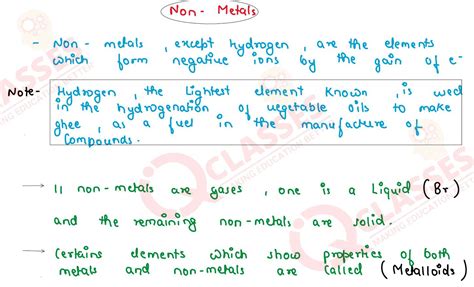 Non- Metals
- Non- metals, except hydrogen, are the elements
which form negative ions by the gain of e-
Note- Hydrogen, the Lightest element known, is used
in the hydrogenation of vegetable oils to make
ghee, as a fuel in the manufacture of
Compounds.
→ 11 non-metals are gases, one is a Liquid (Br)
and the remaining non-metals are solid.
→ Certains elements which show properties of both
metals and non-metals are called (Metalloids)
IQ CLASSES
MAKING EDUCATION BETTER